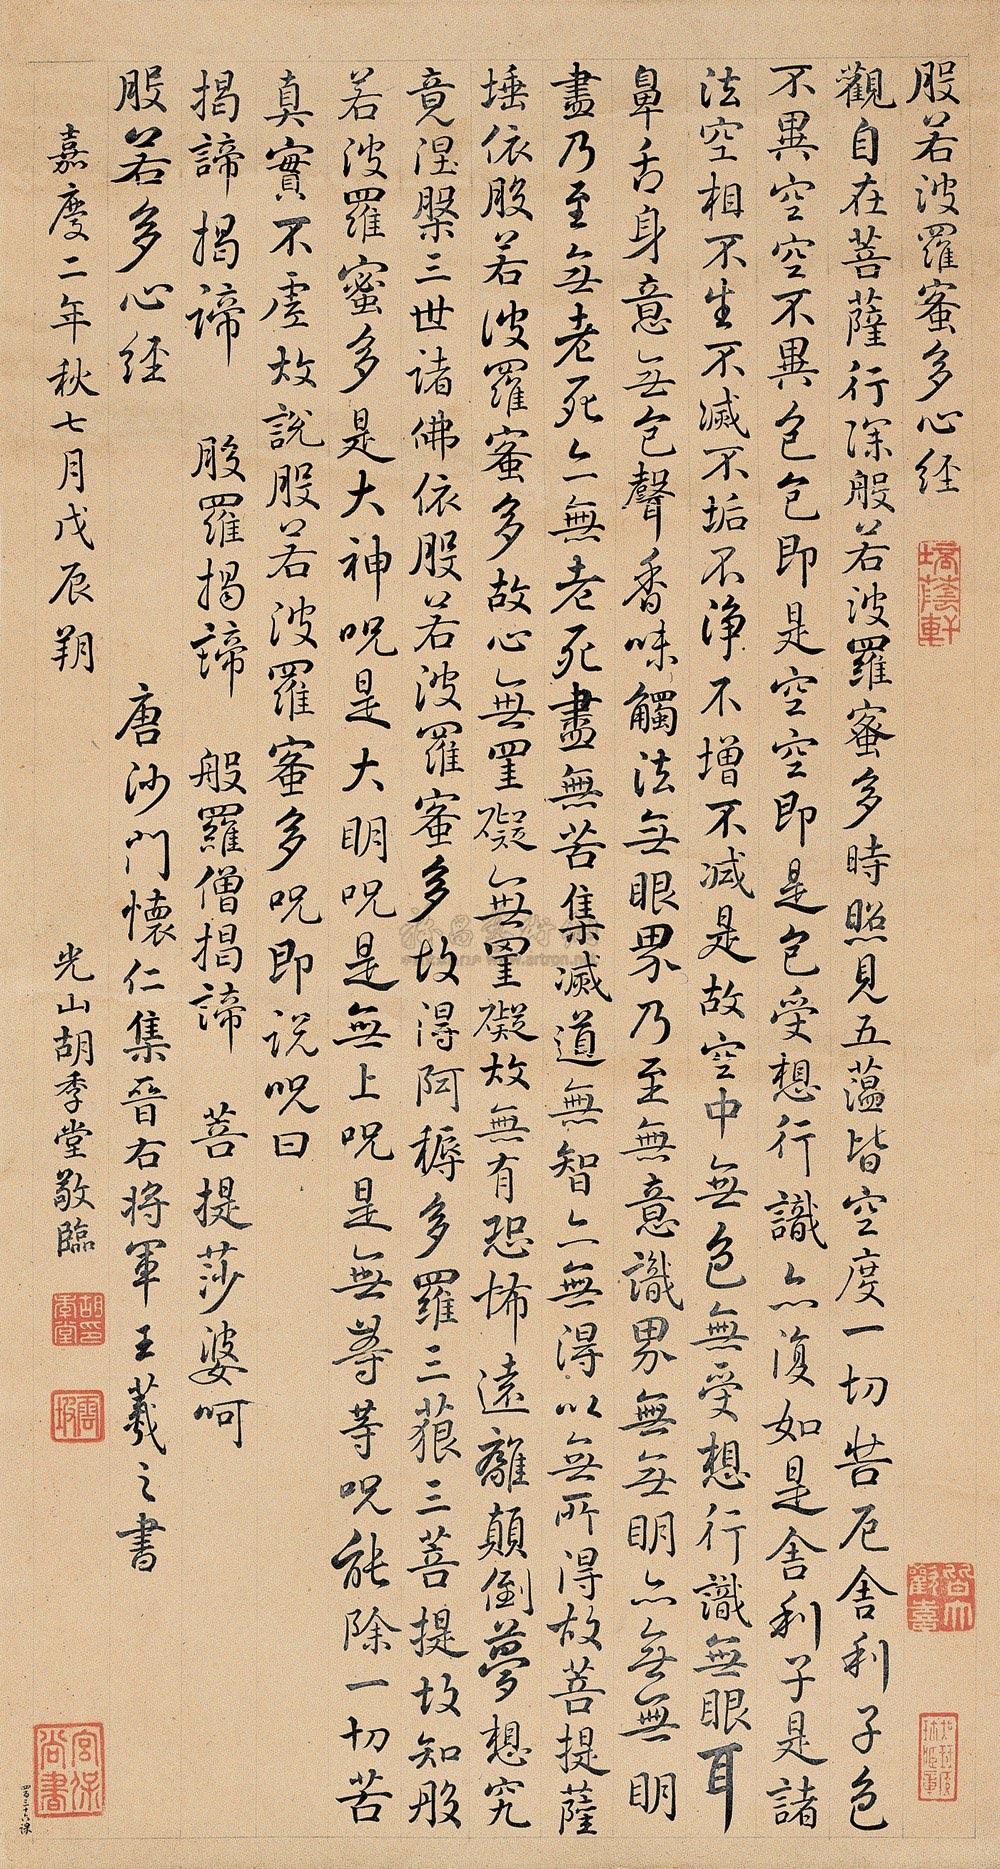 般若波羅蜜多心經
觀自在菩薩行深般若波羅蜜多時照見五蘊皆空度一切苦厄舍利子色
不異空空不異色色即是空空即是色受想行識亦復如是舍利子是諸
法空相不生不滅不垢不淨不增不減是故空中無色無受想行識無眼耳
鼻舌身意無色聲香味觸法無眼界乃至無意識界無無明亦無無明
盡乃至無老死亦無老死盡無苦集滅道無智亦無得以無所得故菩提薩
埵依般若波羅蜜多故心無罣礙無罣礙故無有恐怖遠離顛倒夢想究
竟涅槃三世諸佛依般若波羅蜜多故得阿耨多羅三藐三菩提故知般
若波羅蜜多是大神呪是大明呪是無上呪是無等等呪能除一切苦
真實不虛故說般若波羅蜜多呪即說呪曰
揭諦揭諦 般羅揭諦 般羅僧揭諦 菩提莎婆呵
般若多心経
唐沙門懷仁集晉右將軍王羲之書
嘉慶二年秋七月戊辰朔
光山胡季堂敬臨
胡季堂印
雲坡
宮保尚書
皆大歡喜